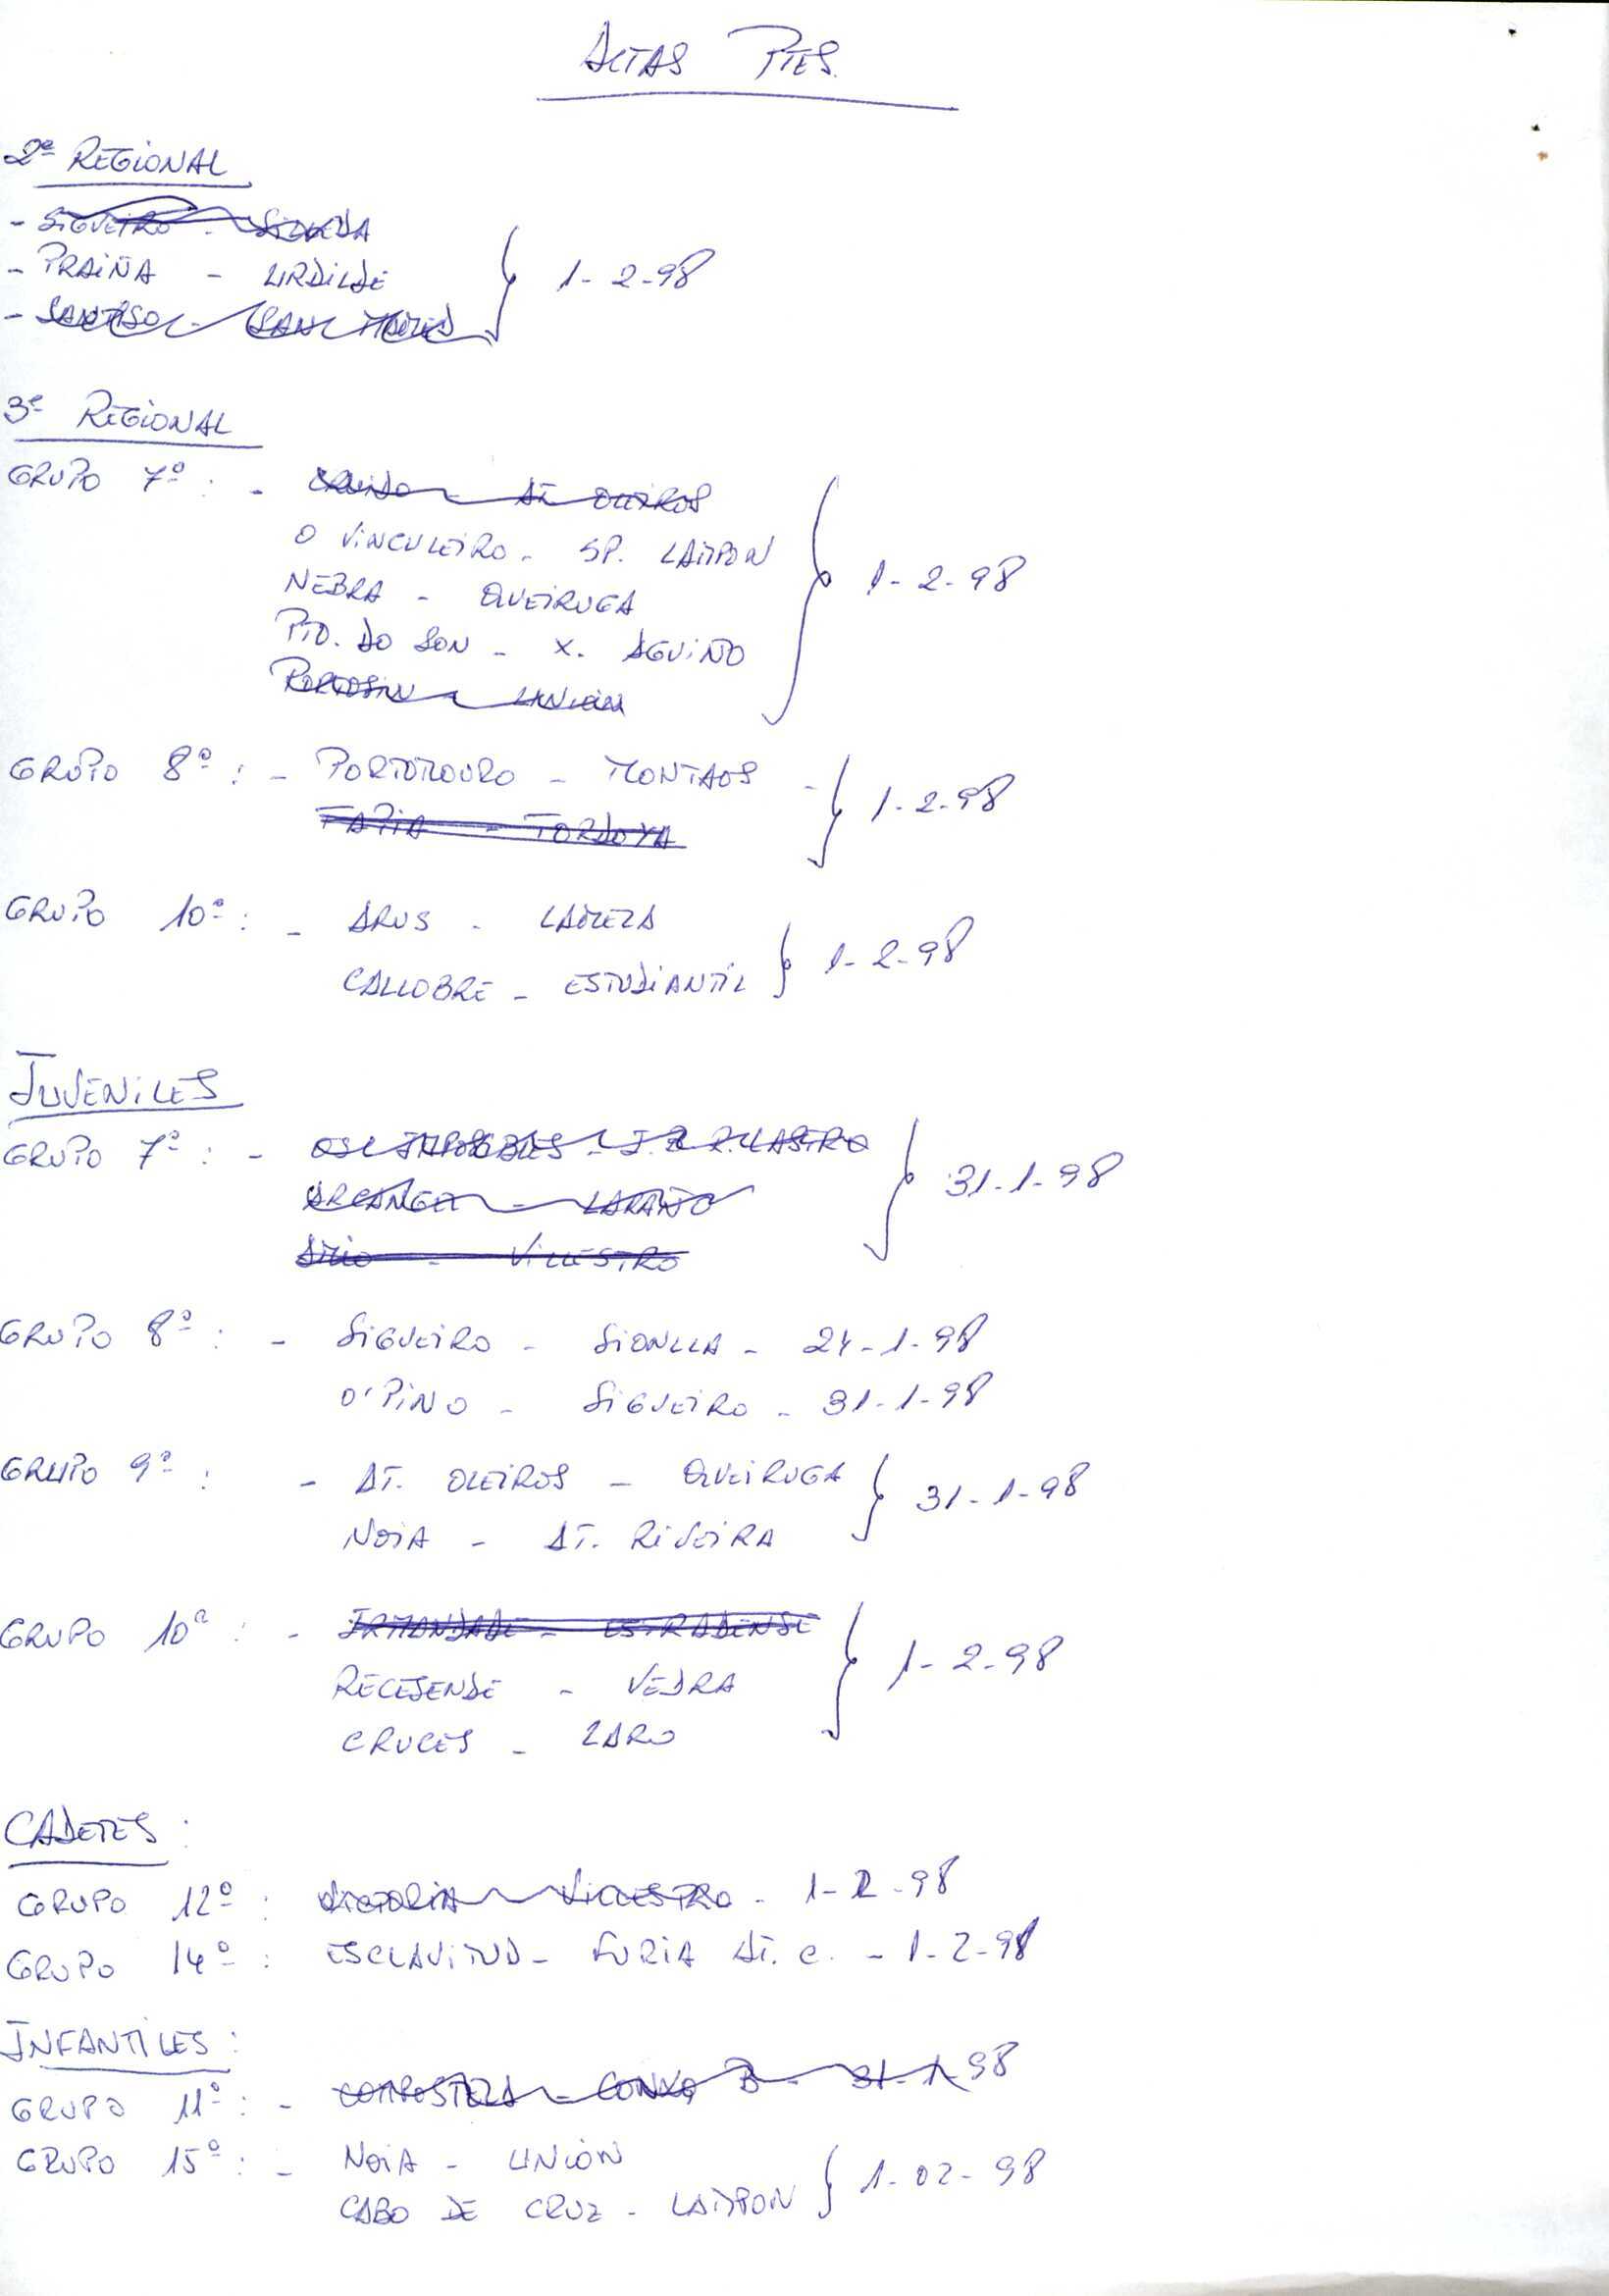 ACTAS PTES.
2ª REGIONAL
- SIGUEIRO - SILLEDA
- PRAIÑA - URDILDE
1-2-98
- SANTISO - SAN
3ª REGIONAL
GRUPO 7º : - AT. OLEIROS
O VINCULEIRO - SP. LAMPON
NEBRA - QUEIRUGA
1-2-98
PTO. DO SON - X. AGUIÑO
PORTOSIN - UNION
GRUPO 8º : - PORTOMOURO - MONTAOS -
1-2-98
TAPIA - TORDOYA
GRUPO 10º : - ARUS - LAMELA
1-2-98
CALLOBRE - ESTUDIANTIL
JUVENILES
GRUPO 7º : - OS IMPOSIBLES - J.B. R. CASTRO
31-1-98
ARCANGEL - LARAÑO
AMIO - VILLESTRO
GRUPO 8º : - SIGUEIRO - SIONLLA - 24-1-98
O'PINO - SIGUEIRO - 31-1-98
GRUPO 9º : - AT. OLEIROS - QUEIRUGA
31-1-98
NOIA - AT. RIVEIRA
GRUPO 10º : - IRMANDADE - ESTRADENSE
1-2-98
RECESENDE - VEDRA
CRUCES - ZARO
CADETES :
GRUPO 12º : VICTORIA - VILLESTRO - 1-2-98
GRUPO 14º : ESCLAVITUD - FURIA AT. C. - 1-2-98
INFANTILES :
GRUPO 11º : - COMPOSTELA - CONXO B - 31-1-98
GRUPO 15º : - NOIA - UNION
1-02-98
CABO DE CRUZ - LAMPON